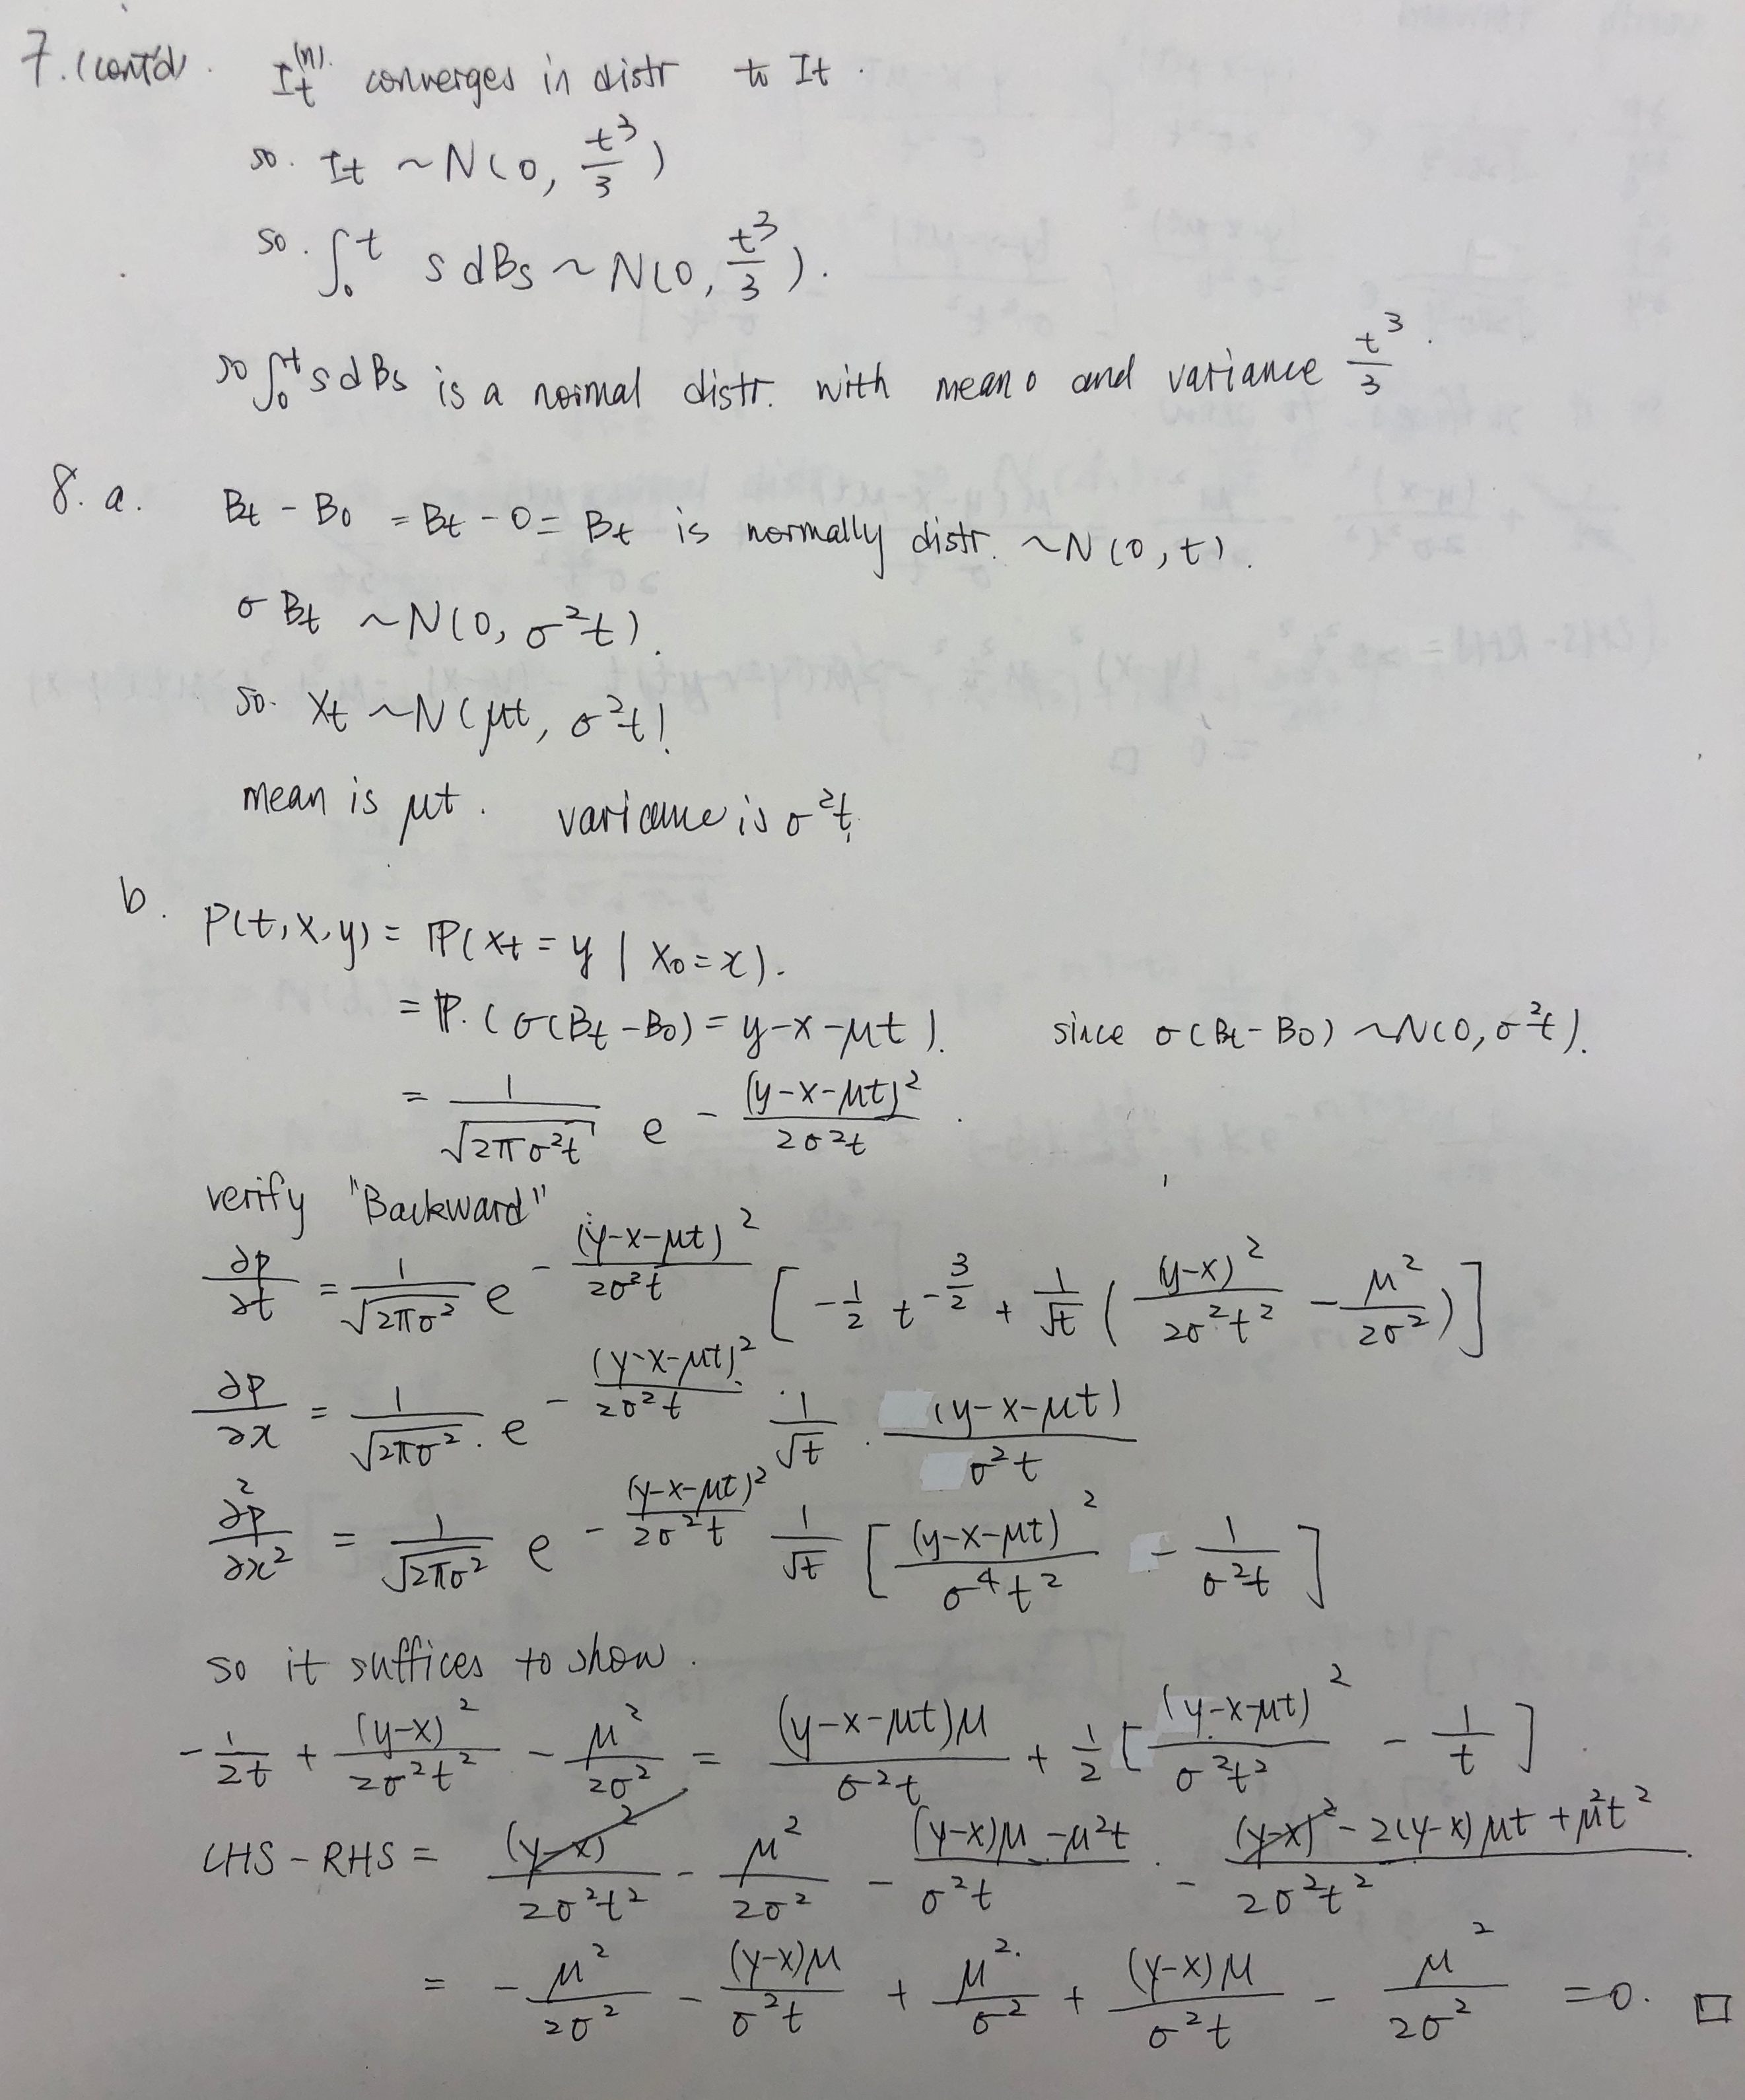 7. (cont'd). I_t^{(n)}. converges in distr to It.
so. It ~ N(0, t^3/3)
so. ∫_0^t s dBs ~ N(0, t^3/3).
so ∫_0^t s dBs is a normal distr. with mean 0 and variance t^3/3.
8. a. Bt - B0 = Bt - 0 = Bt is normally distr. ~N(0, t).
σBt ~ N(0, σ^2t).
so. Xt ~ N(μt, σ^2t).
mean is μt. variance is σ^2t.
b. P(t, x, y) = ℙ(Xt = y | X0 = x).
= ℙ.(σ(Bt - B0) = y - x - μt). since σ(Bt - B0) ~ N(0, σ^2t).
= 1/√(2πσ^2t) e^{-(y-x-μt)^2/(2σ^2t)}.
verify "Backward"
∂p/∂t = 1/√(2πσ^2) e^{-(y-x-μt)^2/(2σ^2t)} [-1/2 t^{-3/2} + 1/√t ((y-x)^2/(2σ^2t^2) - μ^2/(2σ^2))]
∂p/∂x = 1/√(2πσ^2) . e^{-(y-x-μt)^2/(2σ^2t)} 1/√t . (y-x-μt)/(σ^2t)
∂^2p/∂x^2 = 1/√(2πσ^2) e^{-(y-x-μt)^2/(2σ^2t)} 1/√t [(y-x-μt)^2/(σ^4t^2) - 1/(σ^2t)]
so it suffices to show.
-1/(2t) + (y-x)^2/(2σ^2t^2) - μ^2/(2σ^2) = (y-x-μt)μ/(σ^2t) + 1/2 [(y-x-μt)^2/(σ^2t^2) - 1/t].
LHS - RHS = (y-x)^2/(2σ^2t^2) - μ^2/(2σ^2) - ((y-x)μ - μ^2t)/(σ^2t) - ((y-x)^2 - 2(y-x)μt + μ^2t^2)/(2σ^2t^2).
= -μ^2/(2σ^2) - (y-x)μ/(σ^2t) + μ^2/σ^2 + (y-x)μ/(σ^2t) - μ^2/(2σ^2) = 0. □